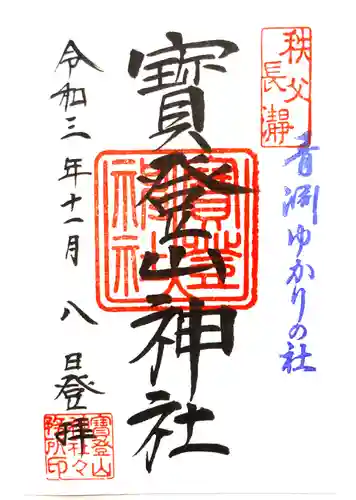 秩父
長瀞
青淵ゆかりの社
寶登山神社
寶登山
神社
令和三年十一月八日登拝
寶登山
神社々
務所印